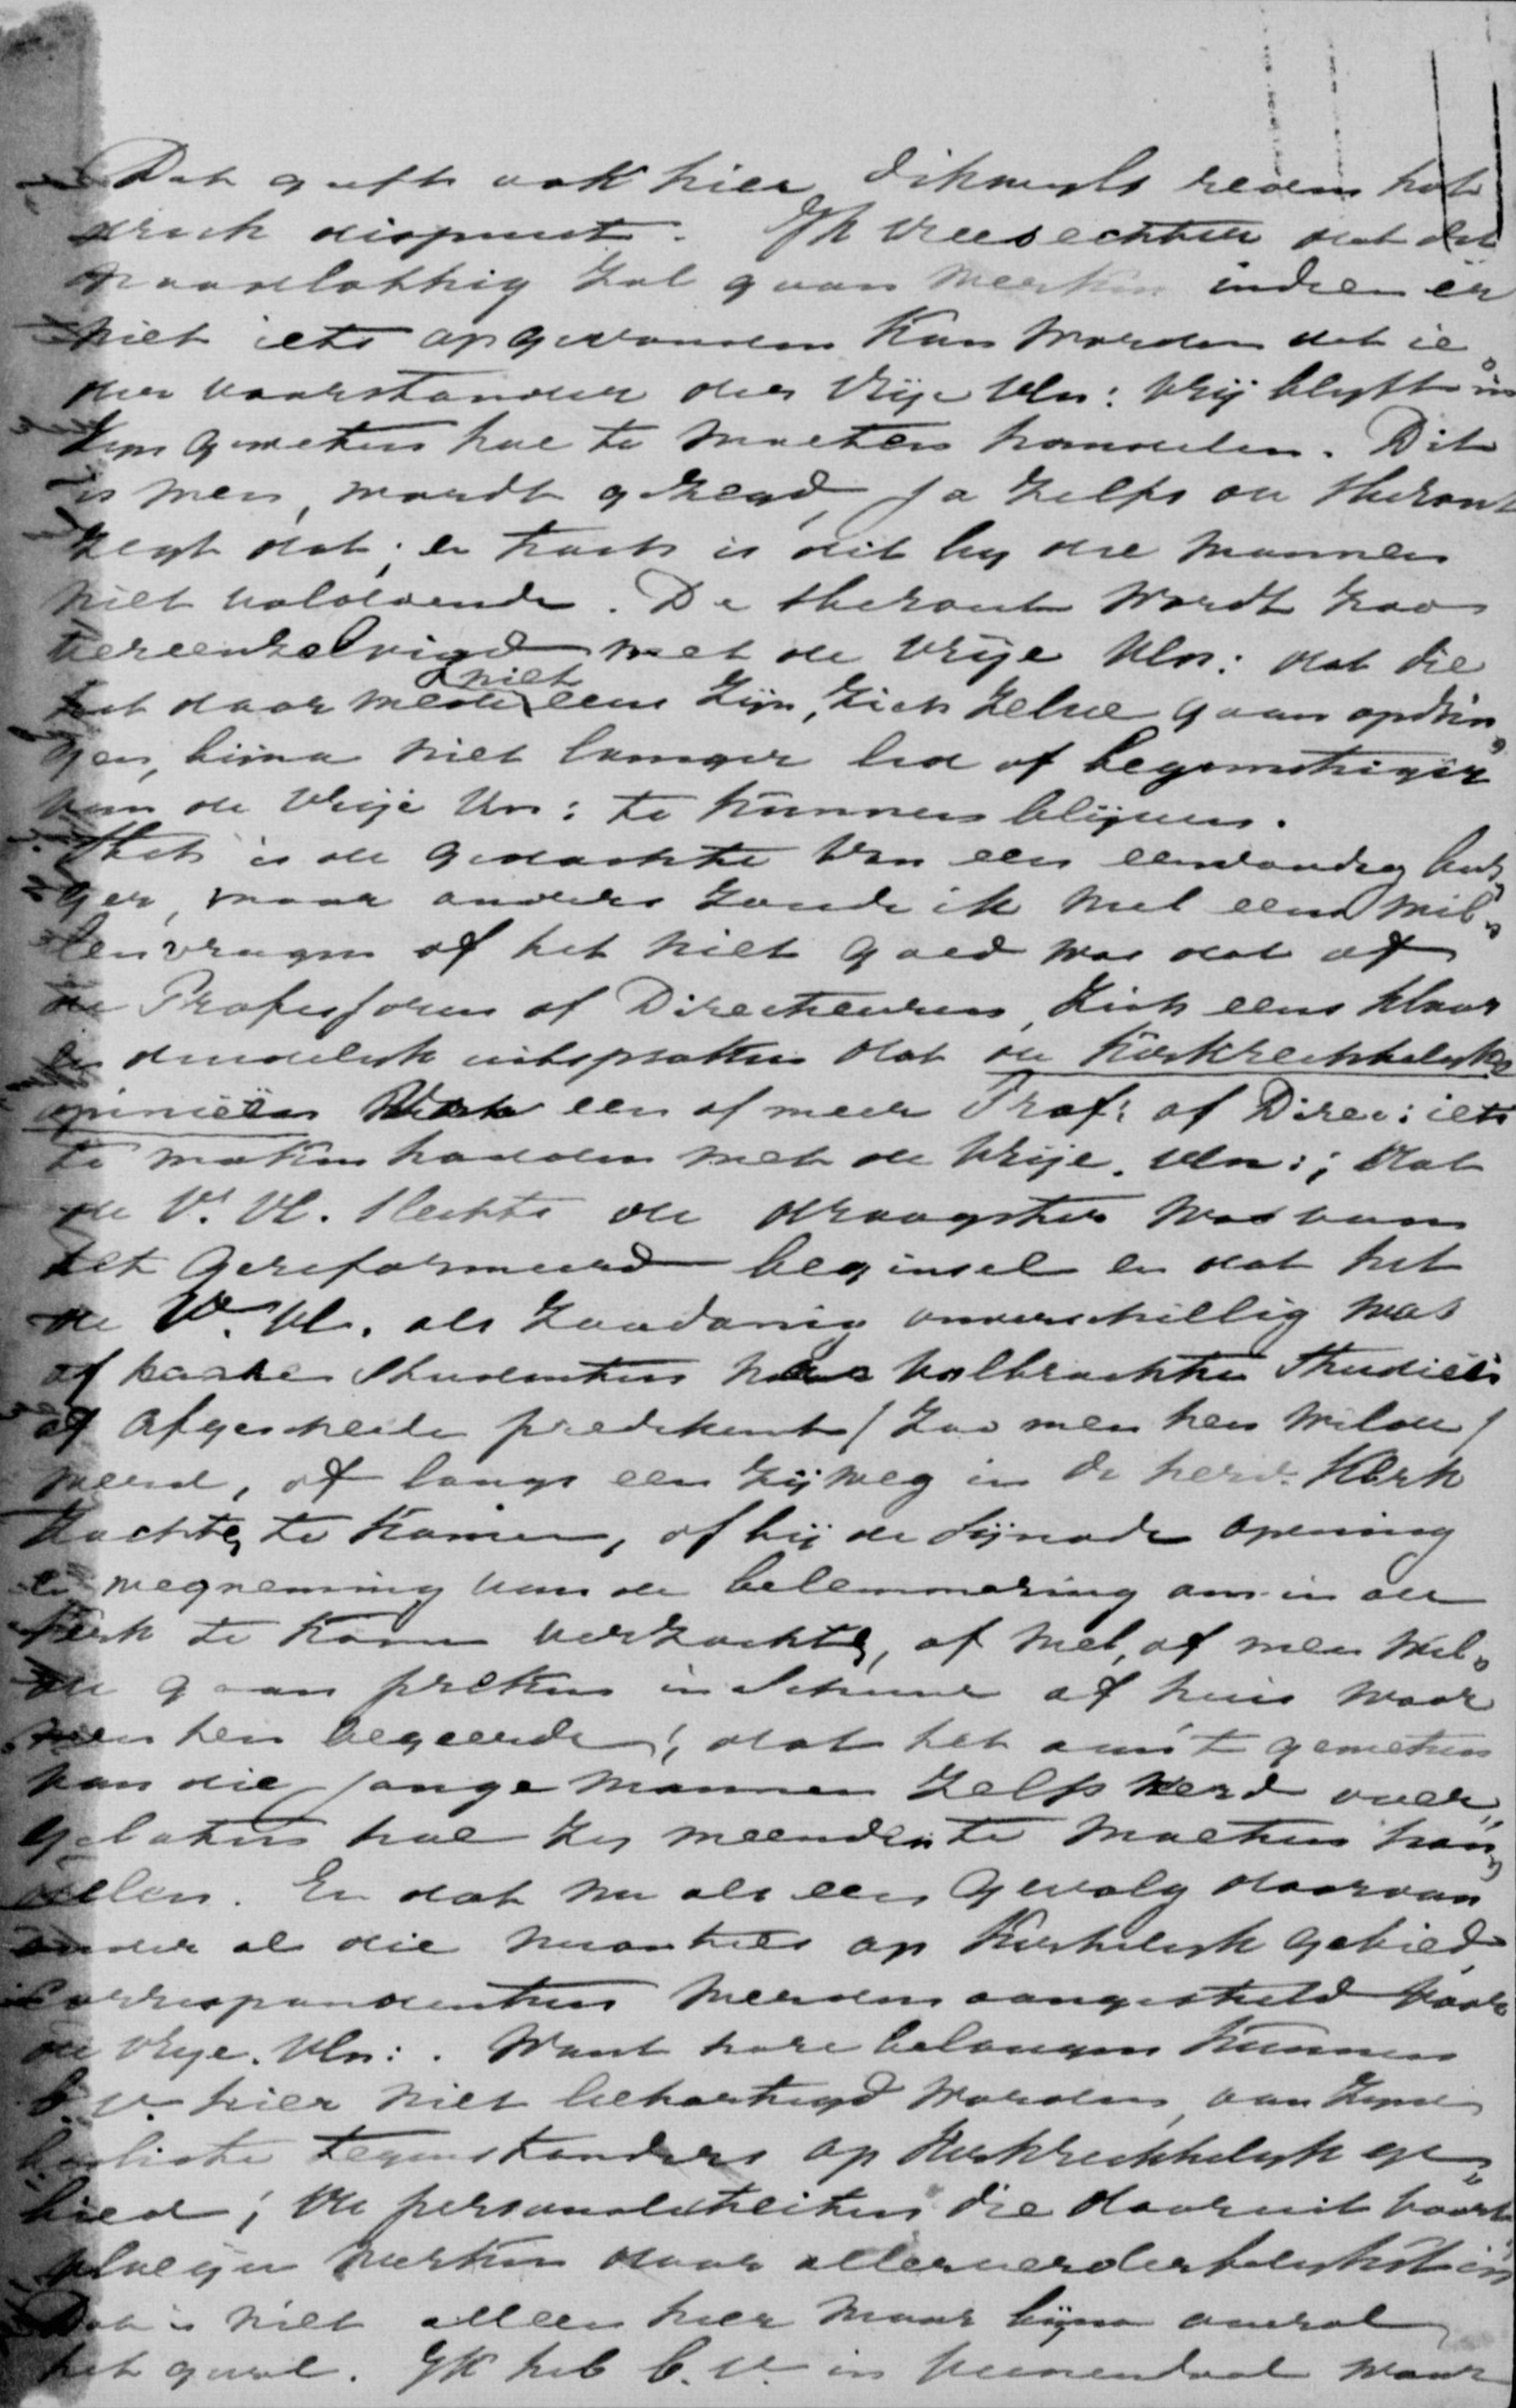 Dat geeft ook hier dikwyls reden tot
druk dispuut. Ik vrees echter dat dit
noodlottig zal gaan werken indien er
niet iets opgevonden kan worden dat ie„
der voorstander der Vrije Un: vrij blyft in
zyn geweten hoe te moeten handelen. Dit
is men, wordt gezegd, ja zelfs de Heraut
zegt dat; en toch is dit by die mannen
niet voldoende. De Heraut wordt zoo
vereenzelvigd met de Vrije Un: dat die
het daar mede niet eens zijn, zich zelve gaan opdrin„
gen, bijna niet langer lid of begunstiger
van de Vrije Un: te kunnen blijven.
Het is de gedachte van een eenvoudig bur„
ger, maar anders zoude ik wel eens wil„
len vragen of het niet goed was dat of
de Professoren of Directeuren, zich eens klaar
en duidelyk uitspraken dat de Kerkrechtelyke
opinieën van een of meer Prof: of Direc: iets
te maken hadden met de Vrije Un:; dat
de V. U. slechts de draagster was van
het Gereformeerd beginsel en dat het
de V. U. als zoodanig onverschillig was
of hare Studenten na volbrachte Studiën
of afgescheide predikant (zoo men hen wilde)
werd, of langs een zijweg in de herv. Kerk
trachtte te komen, of bij de Sijnode opening
en wegneming van de belemmering om in de
Kerk te komen verzochte, of wel, of men wil„
de gaan preken in Schuur of huis waar
men hen begeerde; dat het aan 't geweten
van die jonge mannen zelfs werd over„
gelaten hoe zy meenden te moeten han„
delen. En dat nu als een gevolg daarvan
onder al die nuanties op Kerkelyk gebied
correspondenten werden aangesteld voor
de Vrye Un:. Want hare belangen kunnen
b.v. hier niet behartigd worden, aan zyne
tegenstanders op Kerkrechtelyk ge„
bied; de persoonlikheiten die daaruit voort
vloeyen werken daar allerverderfelykst in
Dat is niet alleen hier maar bijna overal
het geval. Ik heb b.v. in Veenendaal waar